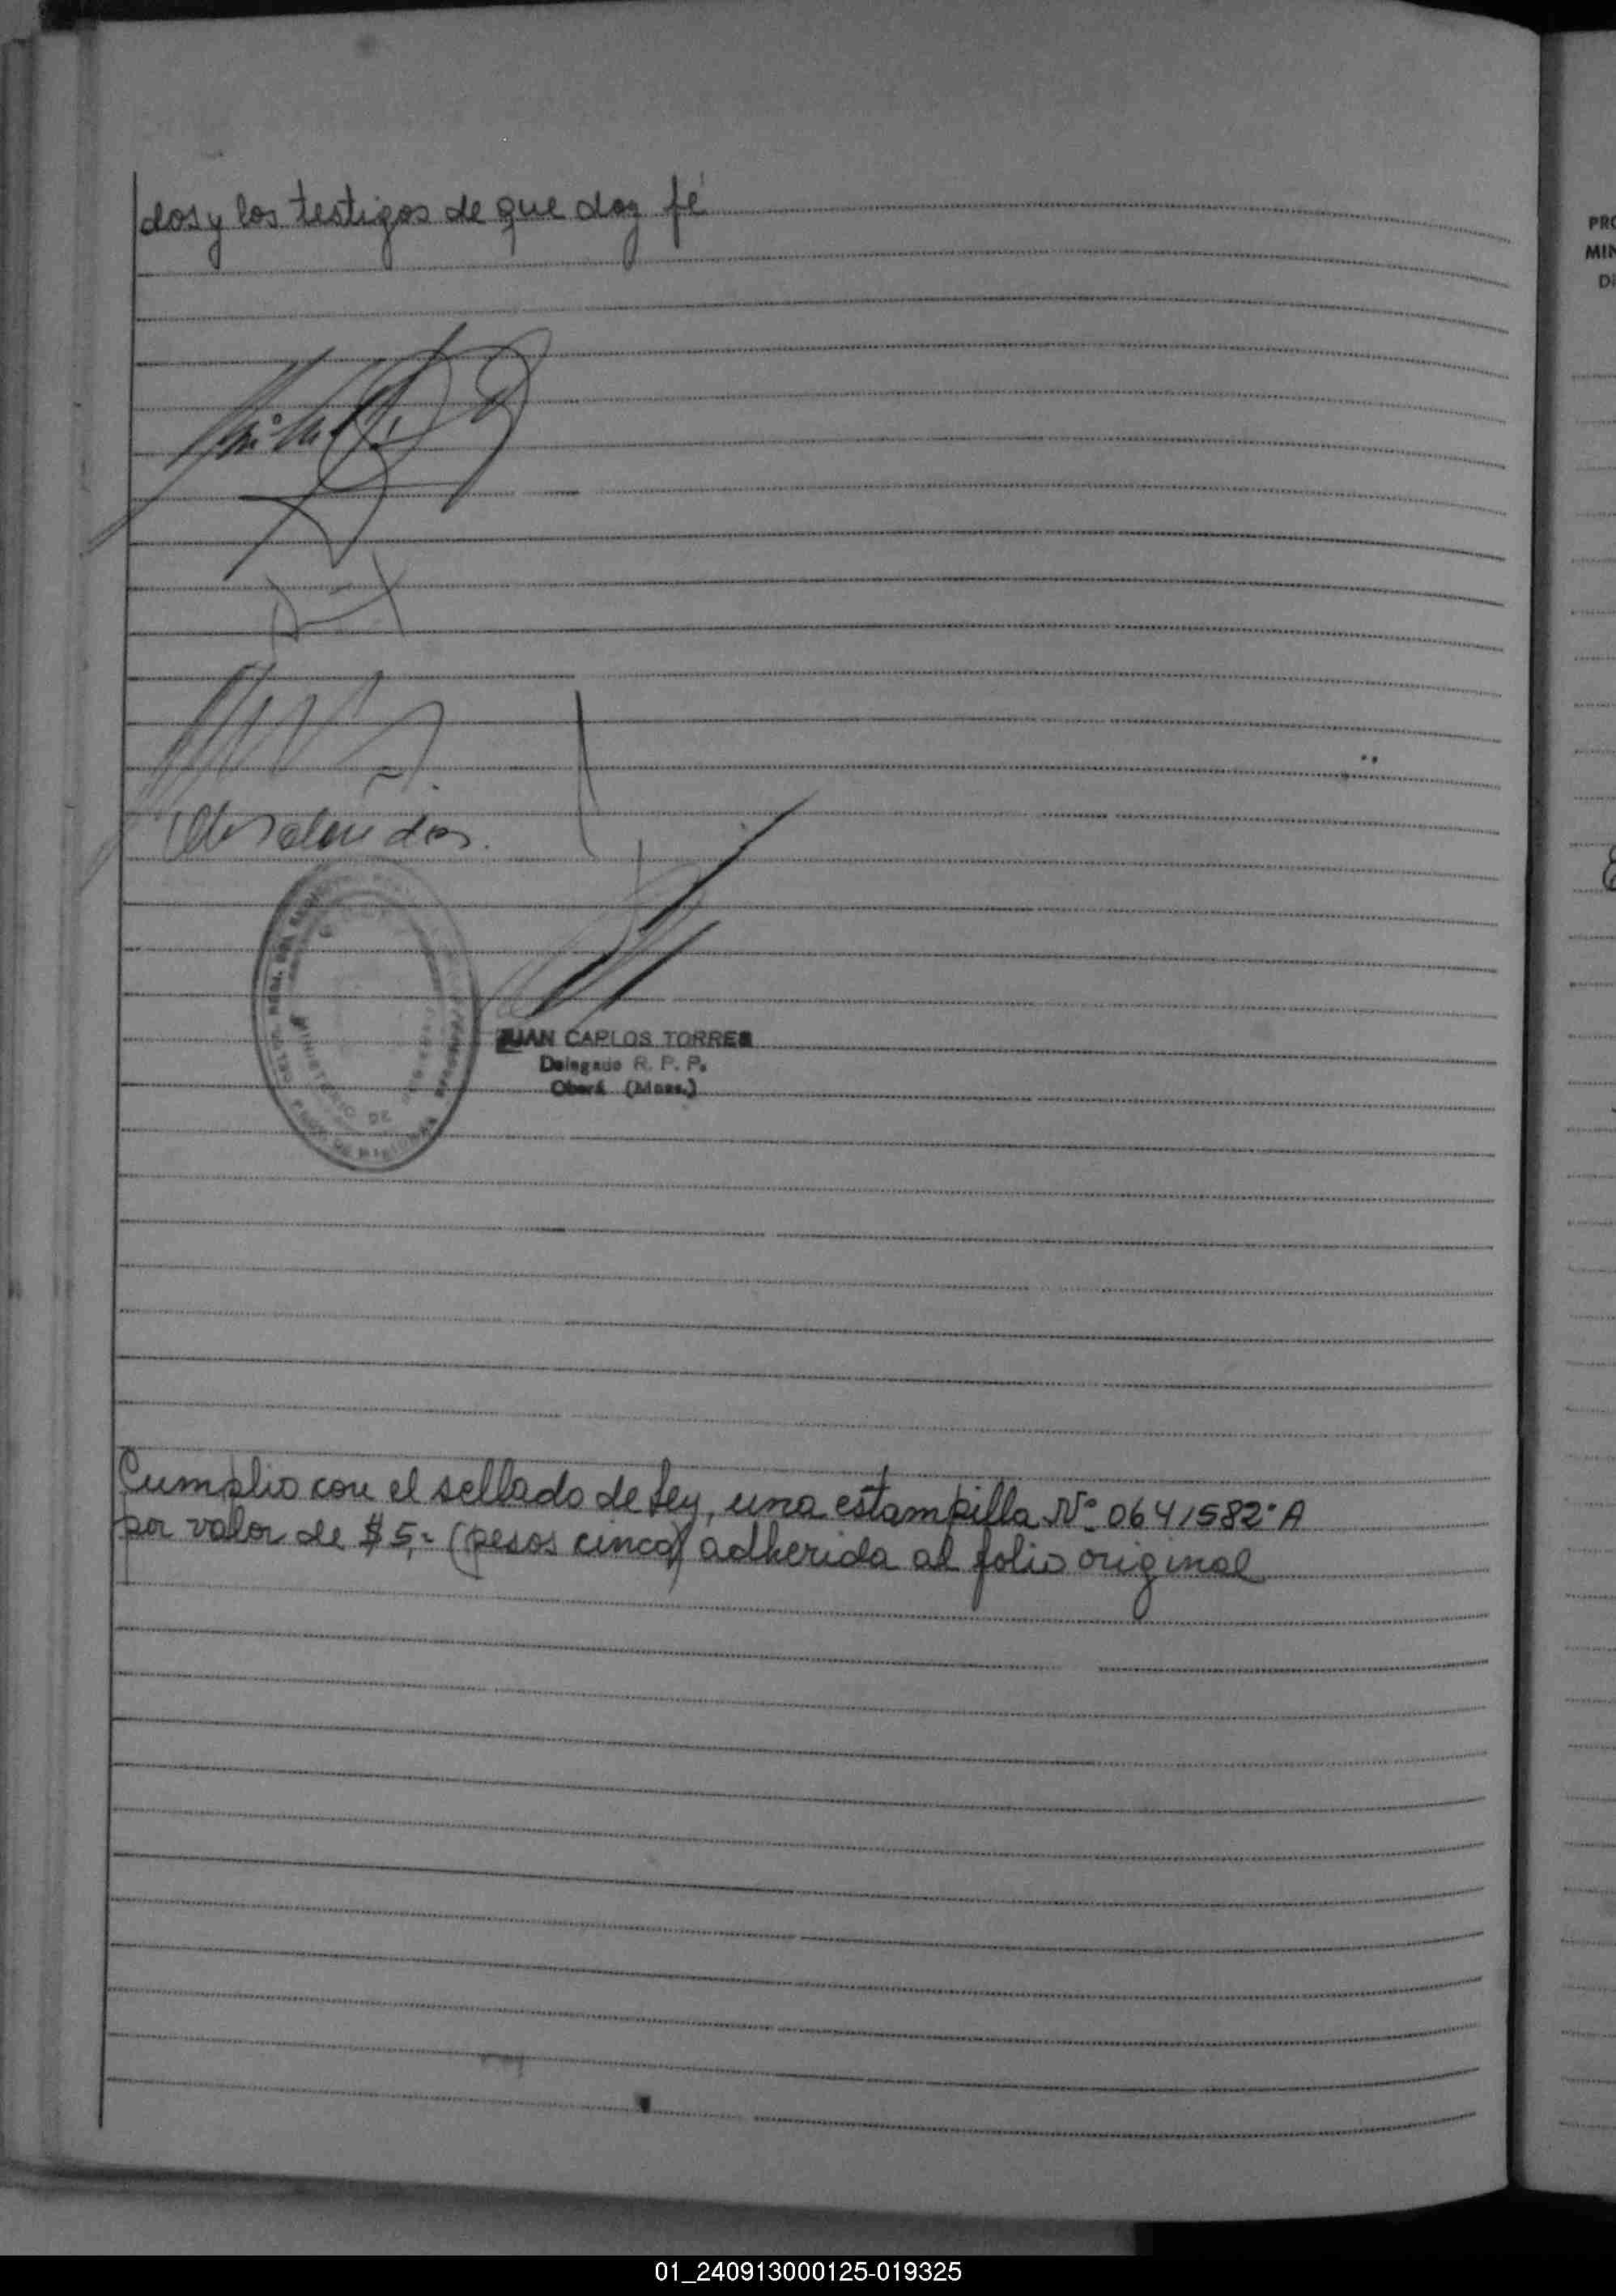 dos y los testigos de que doy fé
JUAN CARLOS TORRES
Delegado R. P. P.
Oberá (Mnes.)
MINISTERIO DE
PROV. DE MISIONES
Cumplio con el sellado de Ley, una estampilla Nº 0641582-A
por valor de $5,- (pesos cinco) adherida al folio original
PRO
MIN
DI
01_240913000125-019325